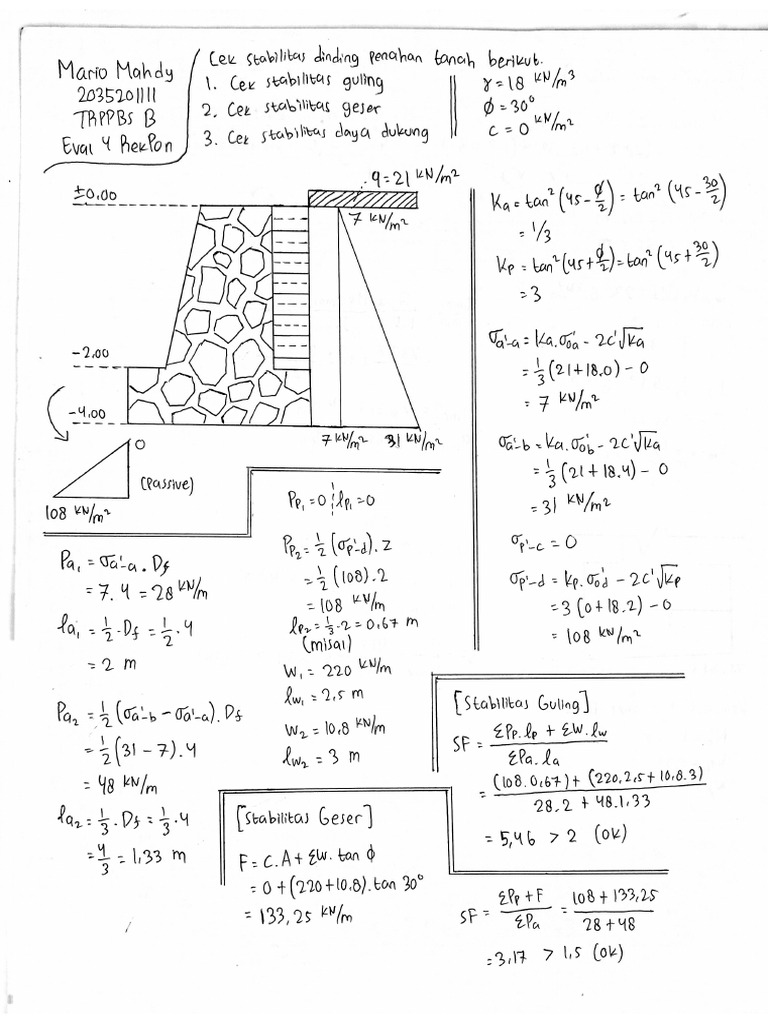 Mario Mahdy
2035201111
TRPPBS B
Eval 4 RekPon
Cek stabilitas dinding penahan tanah berikut.
1. Cek stabilitas guling
2. Cek stabilitas geser
3. Cek stabilitas daya dukung
γ = 18 kN/m³
ϕ = 30°
c = 0 kN/m²
q = 21 kN/m²
±0.00
7 kN/m²
-2.00
-4.00
7 kN/m² 31 kN/m²
0
(Passive)
108 kN/m²
Ka = tan² (45 - ϕ/2) = tan² (45 - 30/2)
= 1/3
Kp = tan² (45 + ϕ/2) = tan² (45 + 30/2)
= 3
σa'-a = Ka . σoa' - 2c'√Ka
= 1/3 (21 + 18.0) - 0
= 7 kN/m²
σa'-b = Ka . σob' - 2c'√Ka
= 1/3 (21 + 18.4) - 0
= 31 kN/m²
σp'-c = 0
σp'-d = Kp . σod' - 2c'√Kp
= 3 (0 + 18.2) - 0
= 108 kN/m²
Pa₁ = σa'-a . Df
= 7. 4 = 28 kN/m
la₁ = 1/2 . Df = 1/2 . 4
= 2 m
Pa₂ = 1/2 (σa'-b - σa'-a) . Df
= 1/2 (31 - 7) . 4
= 48 kN/m
la₂ = 1/3 . Df = 1/3 . 4
= 4/3 = 1,33 m
Pp₁ = 0 ; lp₁ = 0
Pp₂ = 1/2 (σp'-d) . 2
= 1/2 (108) . 2
= 108 kN/m
lp₂ = 1/3 . 2 = 0,67 m
(misal)
W₁ = 220 kN/m
lw₁ = 2,5 m
W₂ = 10,8 kN/m
lw₂ = 3 m
[Stabilitas Guling]
SF = ΣPp. lp + ΣW. lw / ΣPa. la
= (108. 0,67) + (220. 2,5 + 10,8. 3) / 28. 2 + 48. 1,33
= 5,46 > 2 (ok)
[Stabilitas Geser]
F = C. A + ΣW. tan ϕ
= 0 + (220 + 10,8) . tan 30°
= 133,25 kN/m
SF = ΣPp + F / ΣPa = 108 + 133,25 / 28 + 48
= 3,17 > 1,5 (ok)